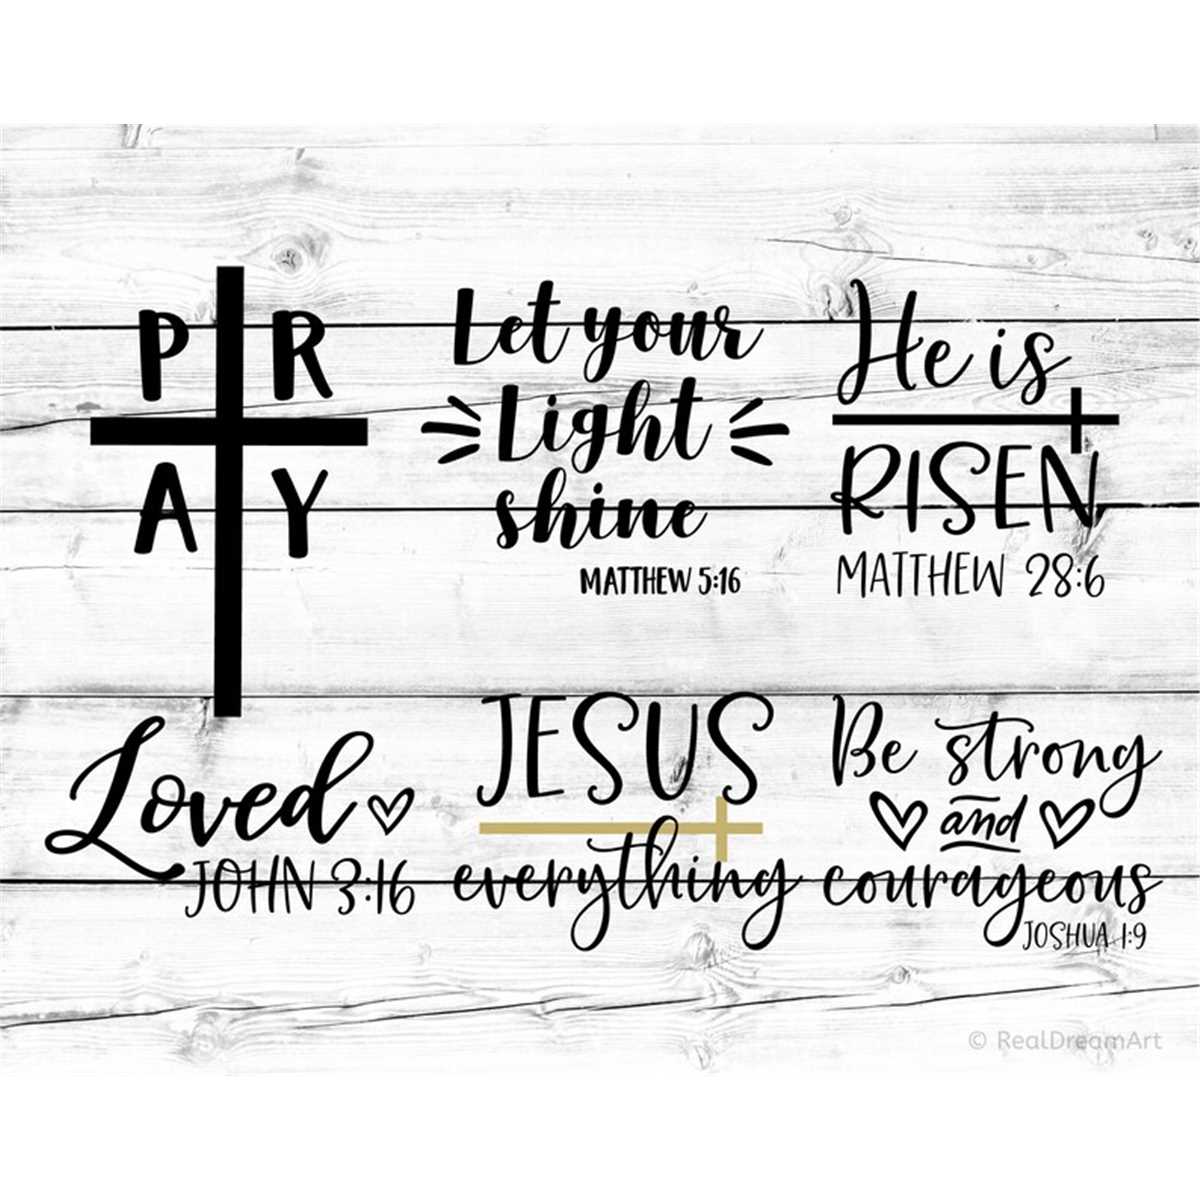 P R
A Y
Let your
Light
shine
MATTHEW 5:16
He is
RISEN
MATTHEW 28:6
Loved
JOHN 3:16
JESUS
everything
Be strong
and
courageous
JOSHUA 1:9
© RealDreamArt